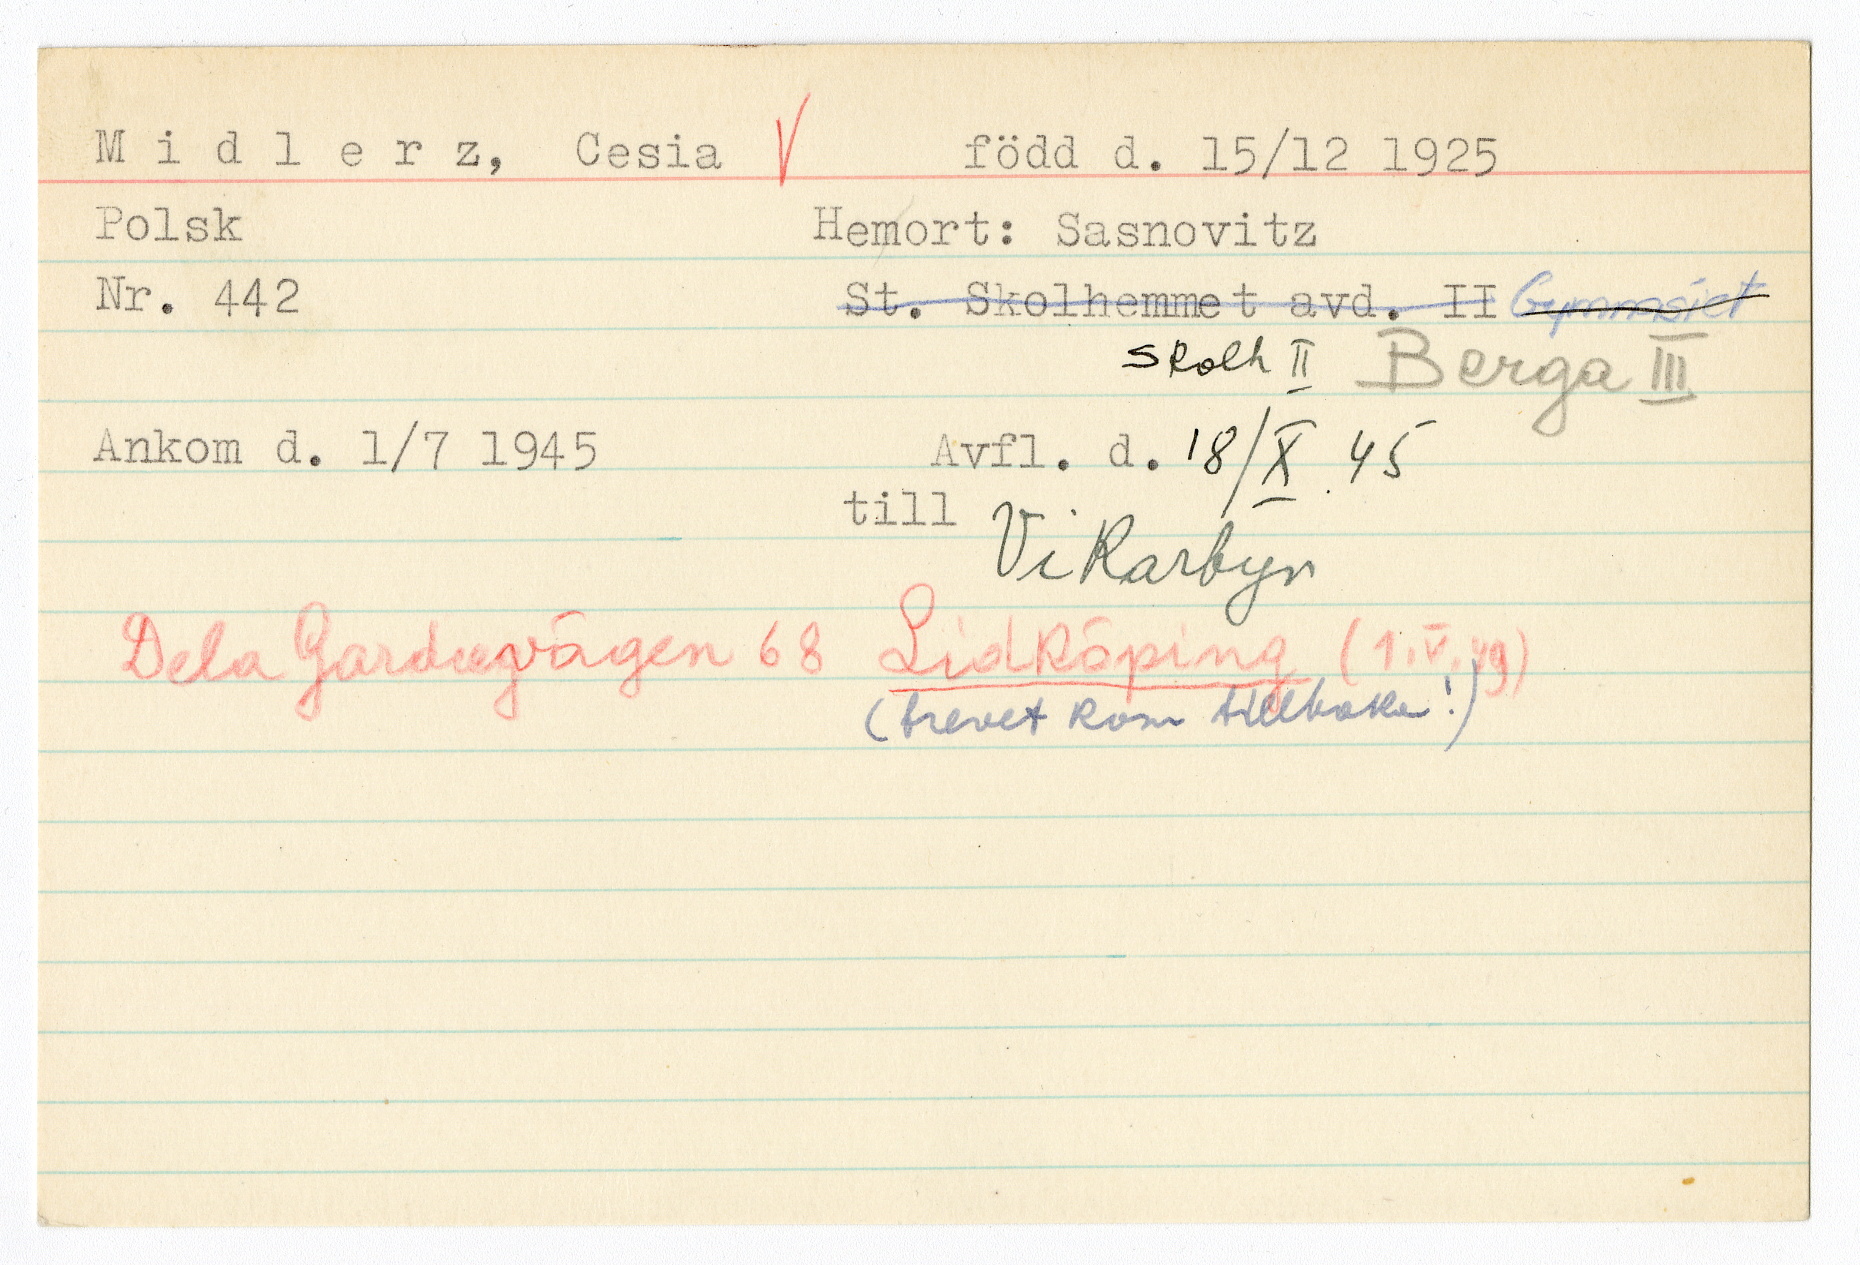 Midlerz, Cesia V född d. 15/12 1925
Polsk Hemort: Sasnovitz
Nr. 442 St. Skolhemmet avd. II Gymnasiet
Skolh II Berga III
Ankom d. 1/7 1945 Avfl. d. 18/X 45
till Vikarbyn
Dela Gardiegvägen 68 Lidköping (1.V.49)
(brevet kom tillbaka!)